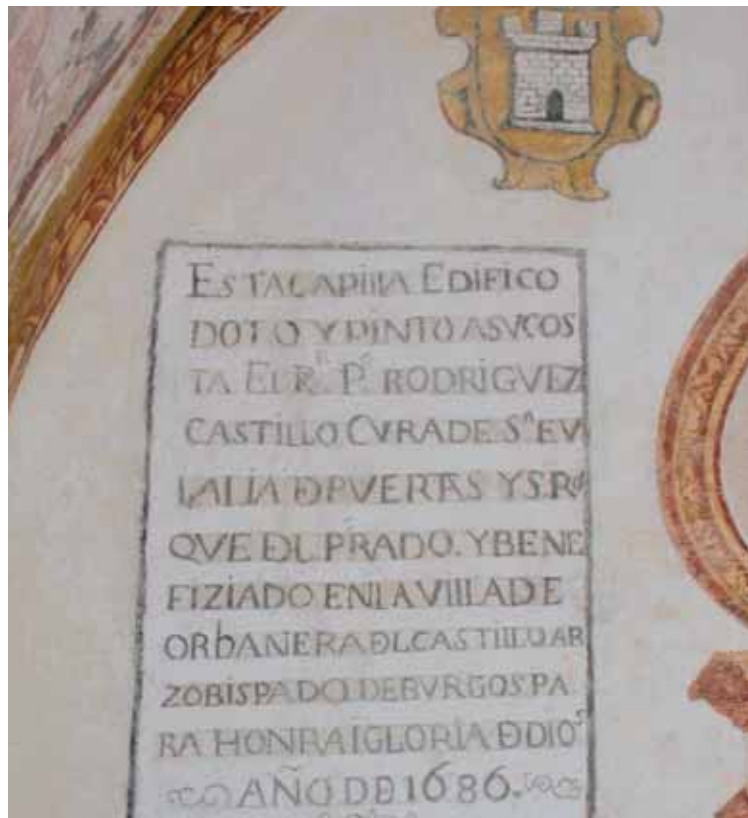 ESTACAPIllA EDIFICO
DOTO Y PINTO ASVCOS
TA El R.ⁿ P.º RODRIGVEZ
CASTILLO CVRA DE S.ᵗᵃ EV
LALIA ĐPVERTAS Y S.Rº
QVE ĐL PRADO. Y BENE
FIZIADO EN LA VIllA DE
ORbANERA ĐL CASTIllO AR
ZOBISPADO DE BVRGOS PA
RA HONRA I GLORIA Đ DIOˢ
AÑO DE 1686.